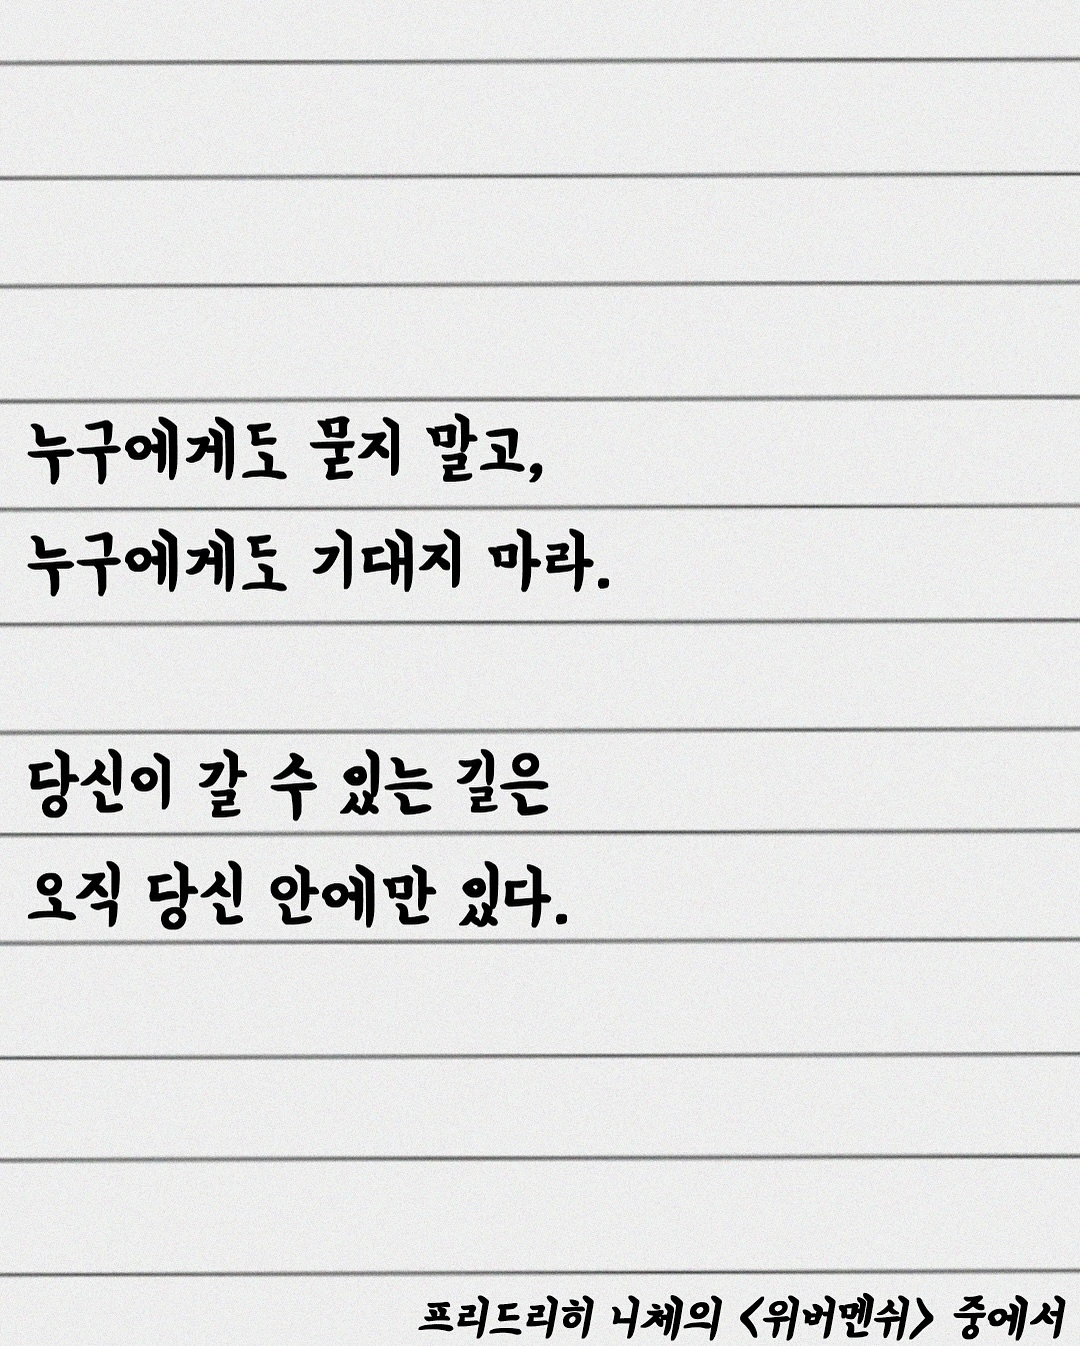 누구에게도 묻지 말고,
누구에게도 기대지 마라.
당신이 갈 수 있는 길은
오직 당신 안에만 있다.
프리드리히 니체의 <위버멘쉬> 중에서